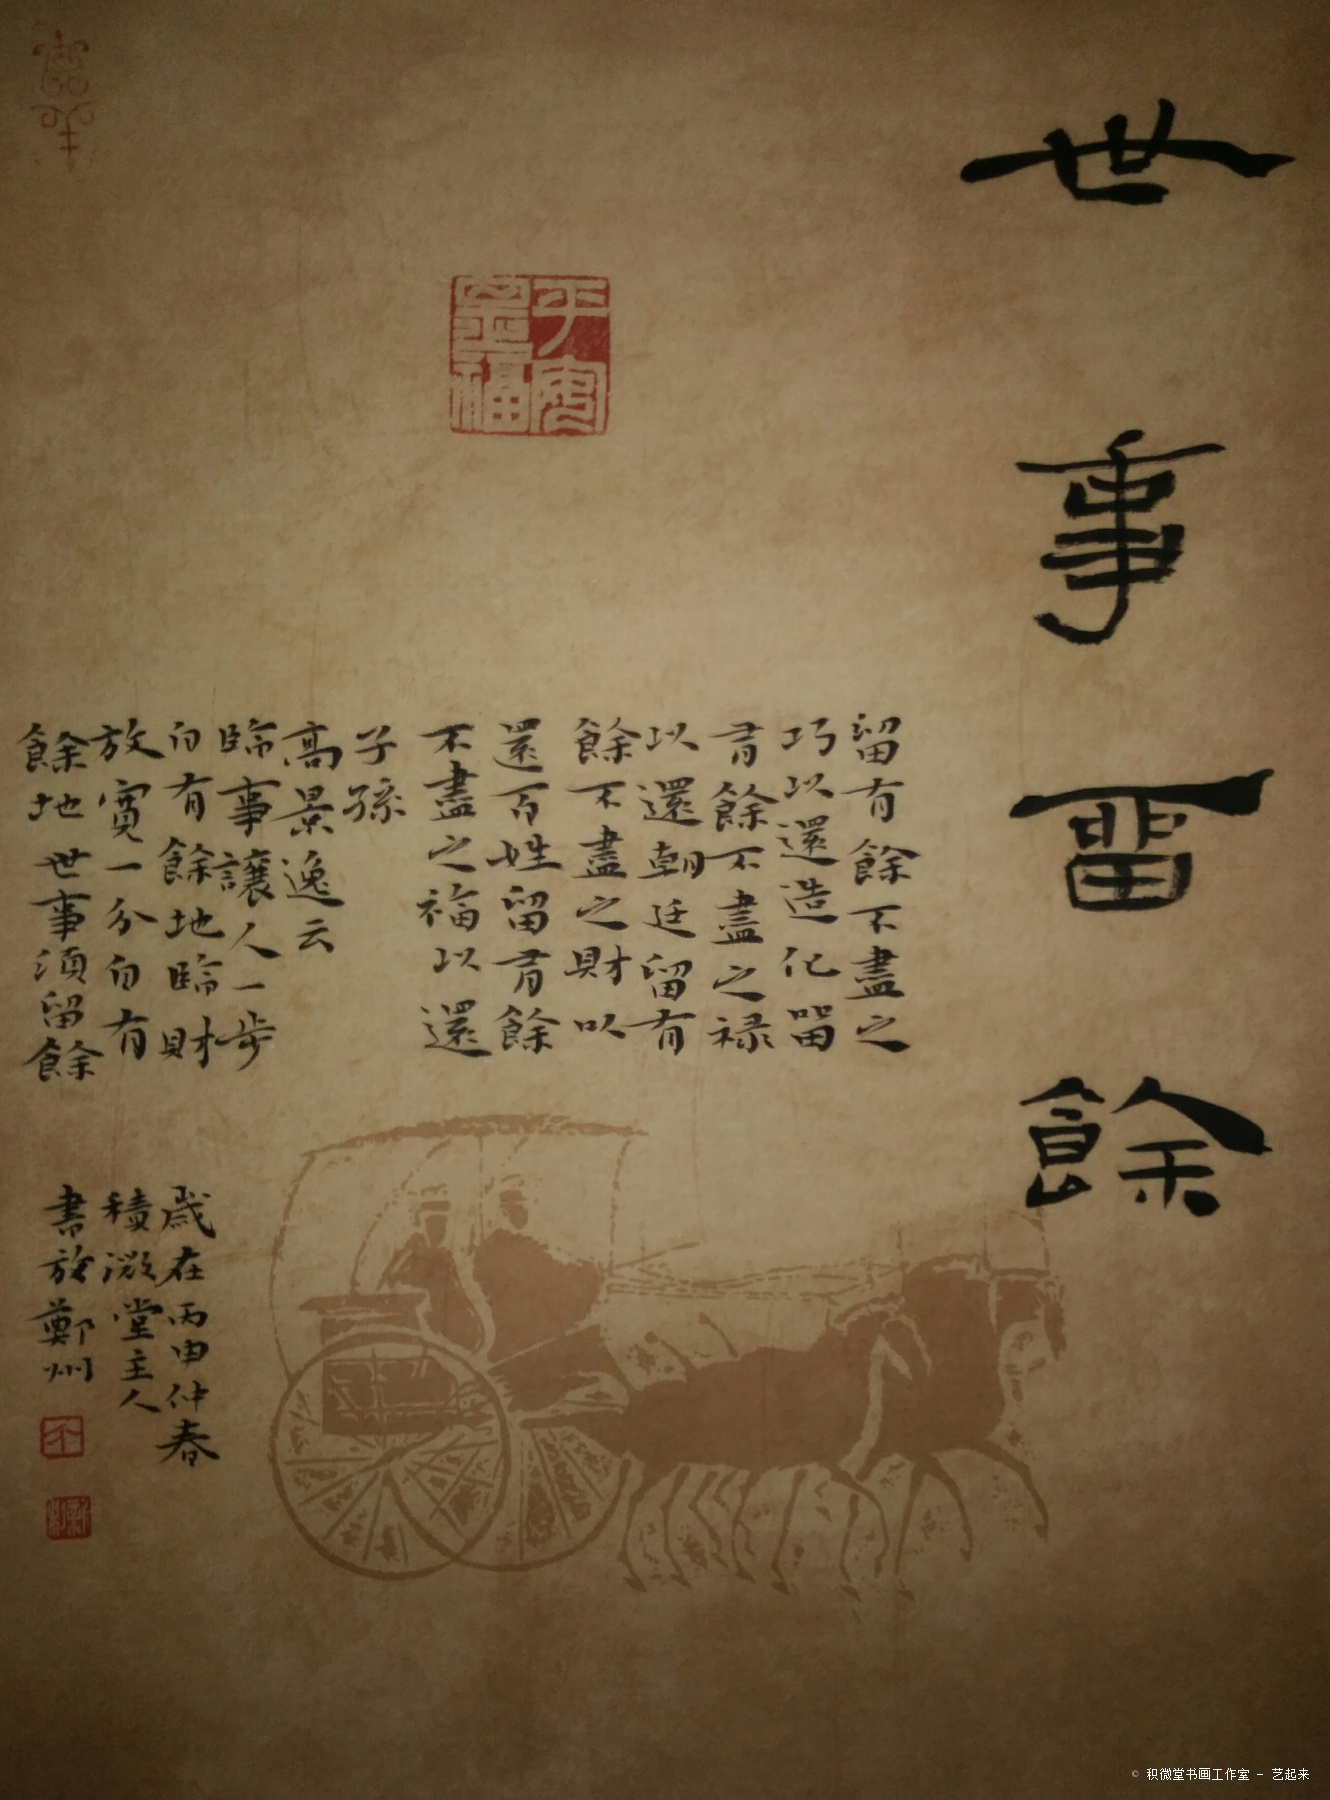 世事畱餘
留有餘不盡之
巧以還造化留
有餘不盡之祿
以還朝廷留有
餘不盡之財以
還百姓留有餘
不盡之福以還
子孫
高景逸云
臨事讓人一步
自有餘地臨財
放寬一分自有
餘地世事須留餘
歲在丙申仲春
積微堂主人
書於鄭州
© 积微堂书画工作室 - 艺起来